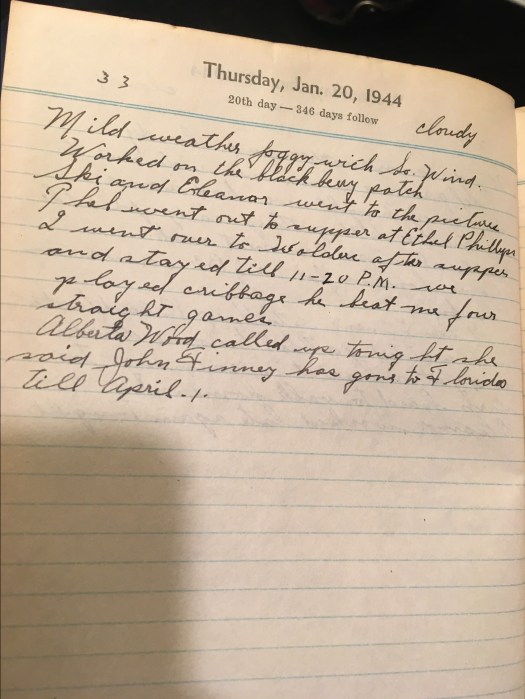 33
Thursday, Jan. 20, 1944
20th day — 346 days follow
cloudy
Mild weather foggy with So. Wind.
Worked on the black bery patch
Ski and Eleanor went to the picture
Phel went out to supper at Ethel Phillips
I went over to after supper
and stayed till 11-20 P.M. we
played cribbage he beat me four
straight games
Alberta Wood called up tonight she
said John Finney has gone to Florida
till April.1.